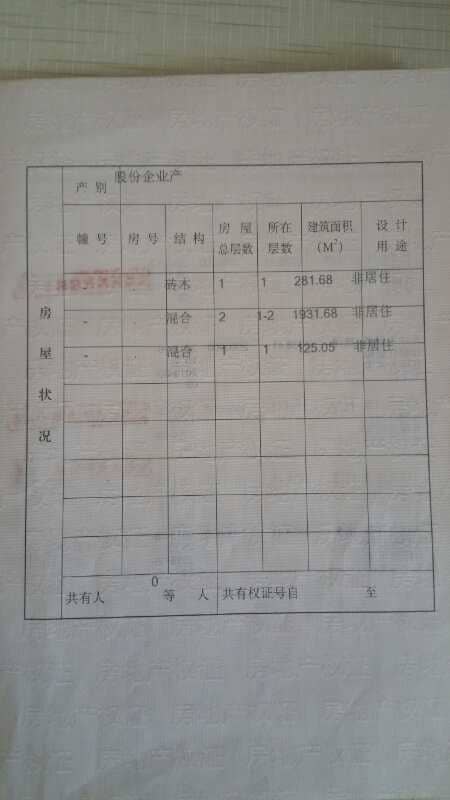 产 别 股份企业产
幢 号 房 号 结 构 房 屋 总层数 所在 层数 建筑面积 (M²) 设 计 用 途
- . 砖木 1 1 281.68 非居住
- . 混合 2 1-2 1931.68 非居住
- . 混合 1 1 125.05 非居住
房屋状况
共有人 0 等 人 共有权证号自 至